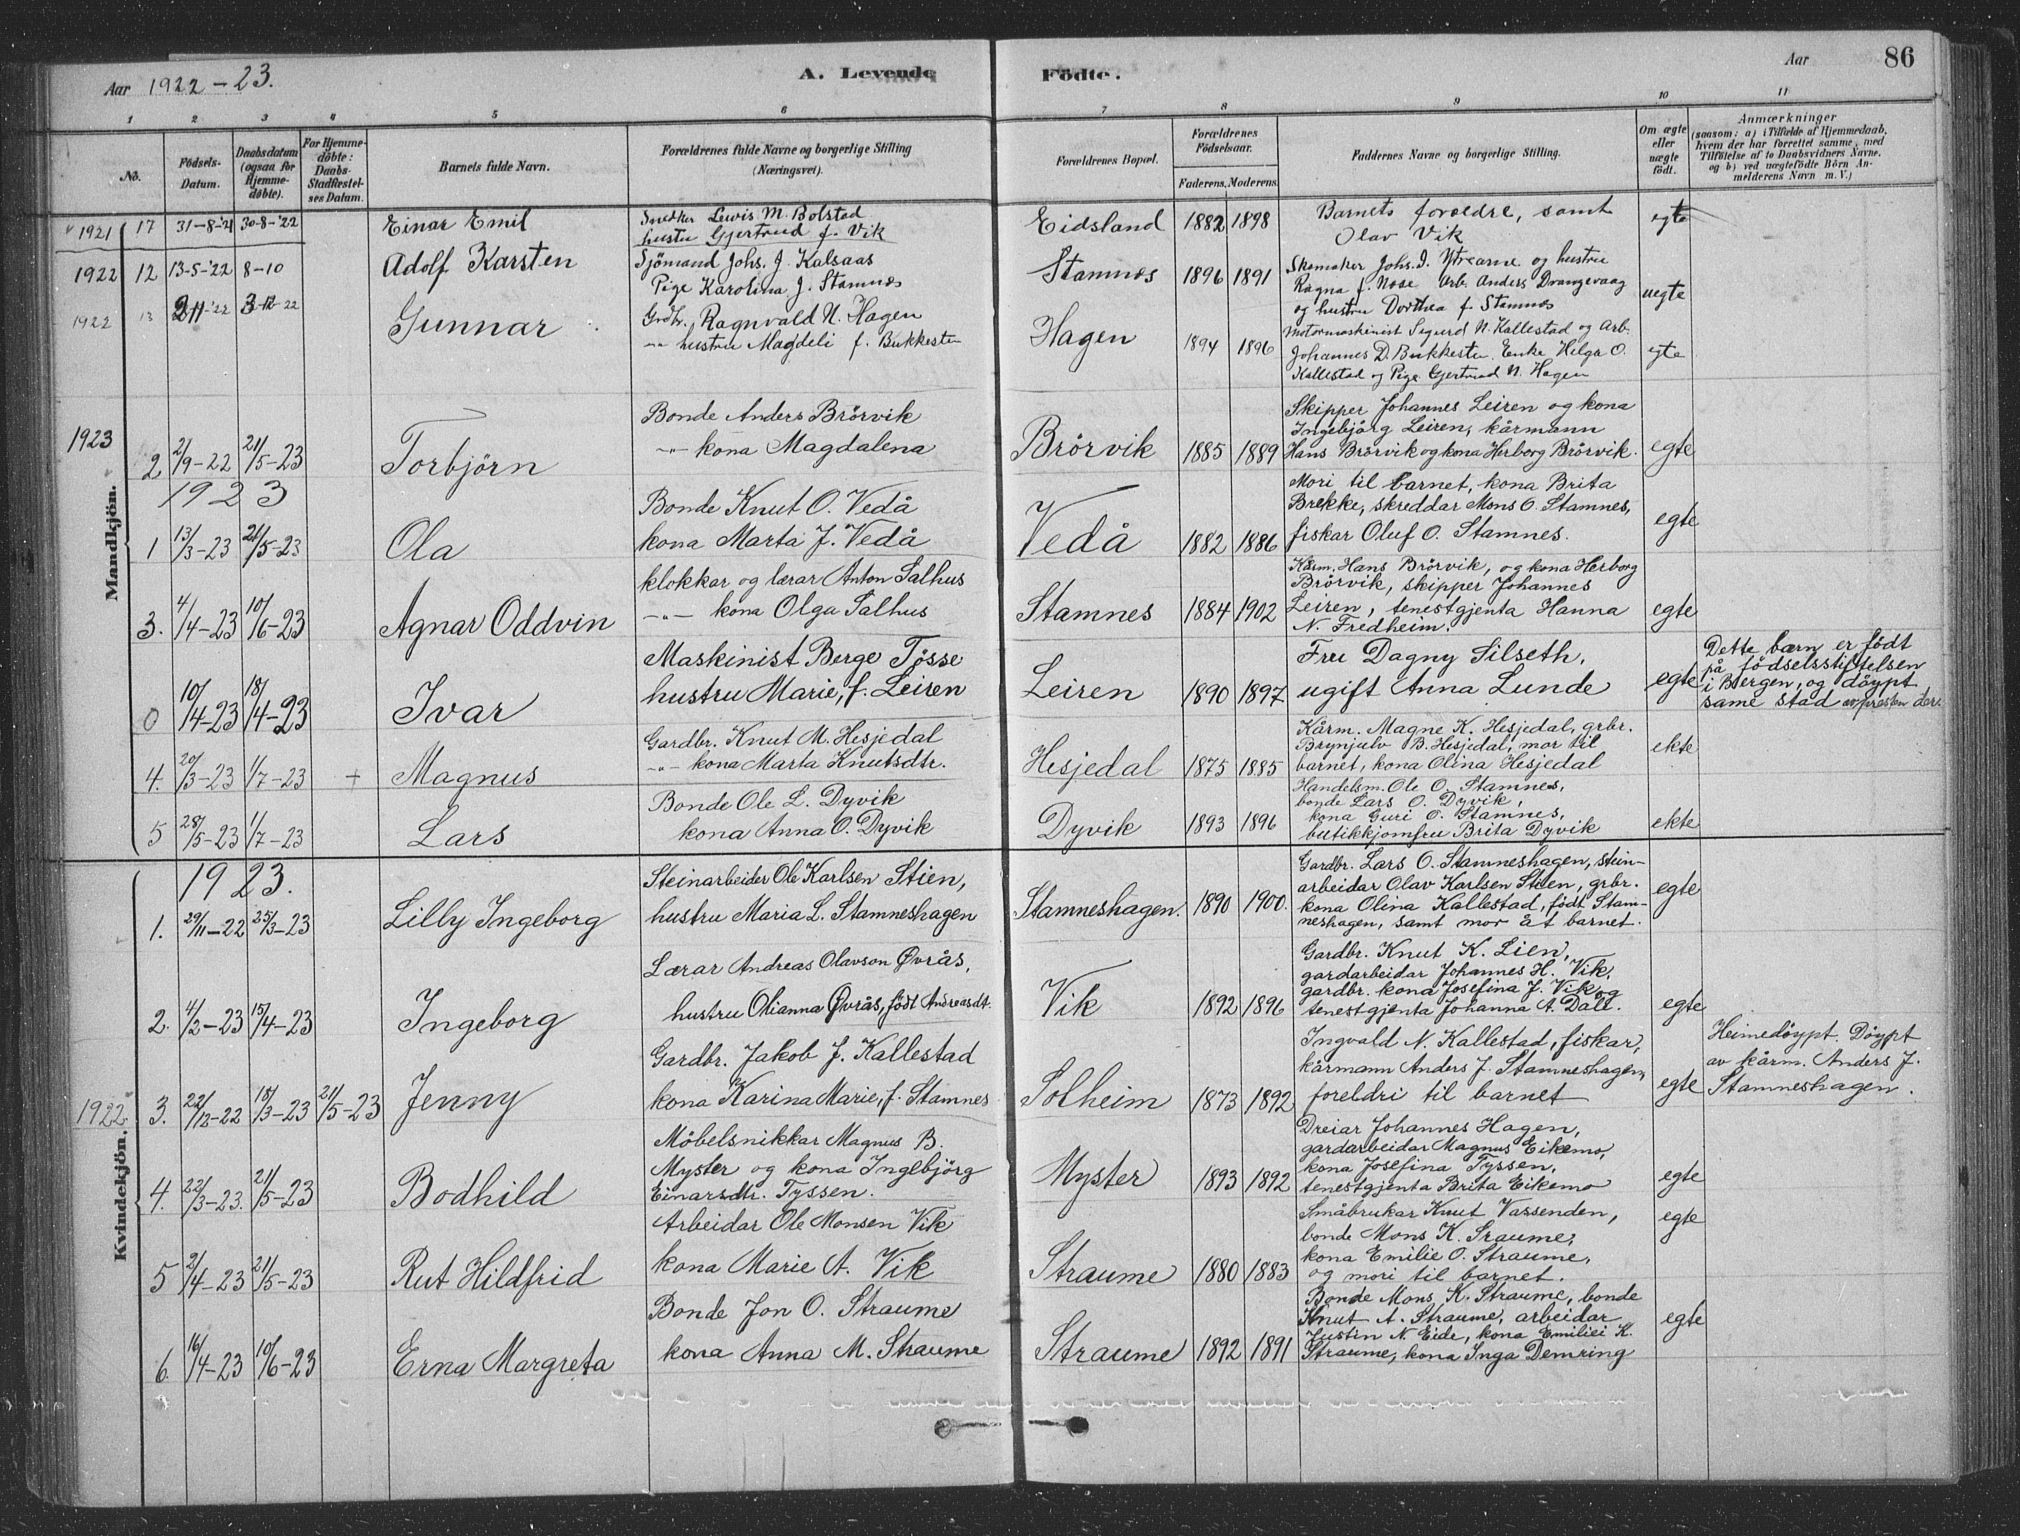 Aar 1922-23. A. Levende Födte. Aar 86
1 2 3 4 5 6 7 8 9 10 11
No. Födsels-Datum. Daabsdatum (ogsaa for Hjemmedöbte). For Hjemmedöbte: Daabs-Stadfæstelses Datum. Barnets fulde Navn. Forældrenes fulde Navne og borgerlige Stilling (Næringsvei). Forældrenes Bopæl. Forældrenes Födselsaar. Faderens. Moderens. Faddernes Navne og borgerlige Stilling. Om ægte eller uægte födt. Anmærkninger (saasom: a) i Tilfælde af Hjemmedaab, hvem der har forrettet samme, med Tilföielse af to Daabsvidners Navne, og b) ved uægtefödte Börn Anmelderens Navn m. V.)
Mandkjön.
1921 17 31-8-21 30-8-'22 Einar Emil
Snedker Lewis M. Bolstad
hustru Gjertrud f. Vik
Eidsland 1882 1898
Barnets forældre, samt
Olav Vik
egte
1922 12 13-5-'22 8-10 Adolf Karsten
Sjömand Johs. J. Kalsaas
Pige Karolina J. Stamnes
Stamnes 1896 1891
Skomaker Johs. I. Ytrearne og hustru
Ragna f. Nose Arb. Anders Drangevaag
og hustru Dorthea f. Stamnes
uegte
1922 13 Gunnar
Grdbr. Ragnvald N. Hagen
-"- hustru Magdeli f. Bukkesten
Hagen 1894 1896
Motormaskinist Sigurd N. Kallestad og Arb.
Johannes D. Bukkesten. Enke Helga O.
Kallestad og Pige Gjertrud N. Hagen
egte
1923
2 2/9-22 21/5-23 Torbjörn
Bonde Anders Brörvik
-"- kona Magdalena
Brörvik 1885 1889
Skipper Johannes Leiren og kona
Ingebjörg Leiren, kårmann
Hans Brörvik og kona Herborg Brörvik.
egte
1923
1 13/3-23 21/5-23 Ola
Bonde Knut O. Vedå
kona Marta J. Vedå
Vedå 1882 1886
Mori til barnet, kona Brita
Brekke, skreddar Mons O. Stamnes,
fiskar Oluf O. Stamnes.
egte
3. 4/4-23 10/6-23 Agnar Oddvin
klokkar og lærar Anton Salhus
-"- kona Olga Salhus
Stamnes 1884 1902
Kårm. Hans Brörvik, og kona Herborg
Brörvik, skipper Johannes
Leiren, tenestgjenta Hanna
N. Fredheim.
egte
0 10/4-23 18/4-23 Ivar
Maskinist Berge Tösse
hustru Marie, f. Leiren
Leiren 1890 1897
Fru Dagny Silseth,
ugift Anna Lunde
egte
Dette barn er födt
på födselsstiftelsen
i Bergen, og döypt
same stad av presten der.
4. 20/3-23 1/7-23 + Magnus
Gardbr. Knut M. Hesjedal
-"- kona Marta Knutsdtr.
Hesjedal 1875 1885
Kårm. Magne K. Hesjedal, grbr.
Brynjulv B. Hesjedal, mor til
barnet, kona Olina Hesjedal
ekte
5 28/5-23 1/7-23 Lars
Bonde Ole L. Dyvik
kona Anna O. Dyvik
Dyvik 1893 1896
Handelsm. Ole O. Stamnes,
bonde Lars O. Dyvik,
kona Guri O. Stamnes,
butikkjomfru Brita Dyvik
ekte
Kvindekjön.
1923.
1. 29/11-22 25/3-23 Lilly Ingeborg
Steinarbeider Ole Karlsen Stien,
hustru Maria L. Stamneshagen
Stamneshagen. 1890 1900.
Gardbr. Lars O. Stamneshagen, stein-
arbeidar Olav Karlsen Stien, grbr.
kona Olina Kallestad, födt Stam-
neshagen, samt mor åt barnet.
egte
2. 4/2-23 15/4-23 Ingeborg
Lærar Andreas Olavson Øvrås,
hustru Olianna Øvrås, födt Andreasdt.
Vik 1892 1896
Gardbr. Knut K. Lien,
gardarbeidar Johannes H. Vik,
gardbr. kona Josefina J. Vik og
tenestgjenta Johanna A. Dale.
egte
1922 3. 22/12-22 18/3-23 21/5-23 Jenny
Gardbr. Jakob J. Kallestad
kona Karina Marie, f. Stamnes
Solheim 1873 1892
Ingvald N. Kallestad, fiskar,
kårmann Anders J. Stamneshagen,
foreldri til barnet
egte
Heimedöypt. Döypt
av kårm. Anders J.
Stamneshagen.
4. 22/3-23. 21/5-23 Bodhild
Möbelsnikkar Magnus B.
Myster og kona Ingebjörg
Einarsdtr. Tyssen.
Myster 1893 1892
Dreiar Johannes Hagen,
gardarbeidar Magnus Eikemo,
kona Josefina Tyssen,
tenestgjenta Brita Eikemo
egte
5 2/4-23 21/5-23 Rut Hildfrid
Arbeidar Ole Monsen Vik
kona Marie A. Vik
Straume 1880 1883
Småbrukar Knut Vassenden,
bonde Mons K. Sraume,
kona Emilie O. Straume,
og mori til barnet.
egte
6. 16/4-23 10/6-23 Erna Margreta
Bonde Jon O. Straume
kona Anna M. Straume
Straume 1892 1891
Bonde Mons K. Straume, bonde
Knut A. Straume, arbeidar
Justin N. Eide, kona Emiliei K.
Straume, kona Inga Demring
egte